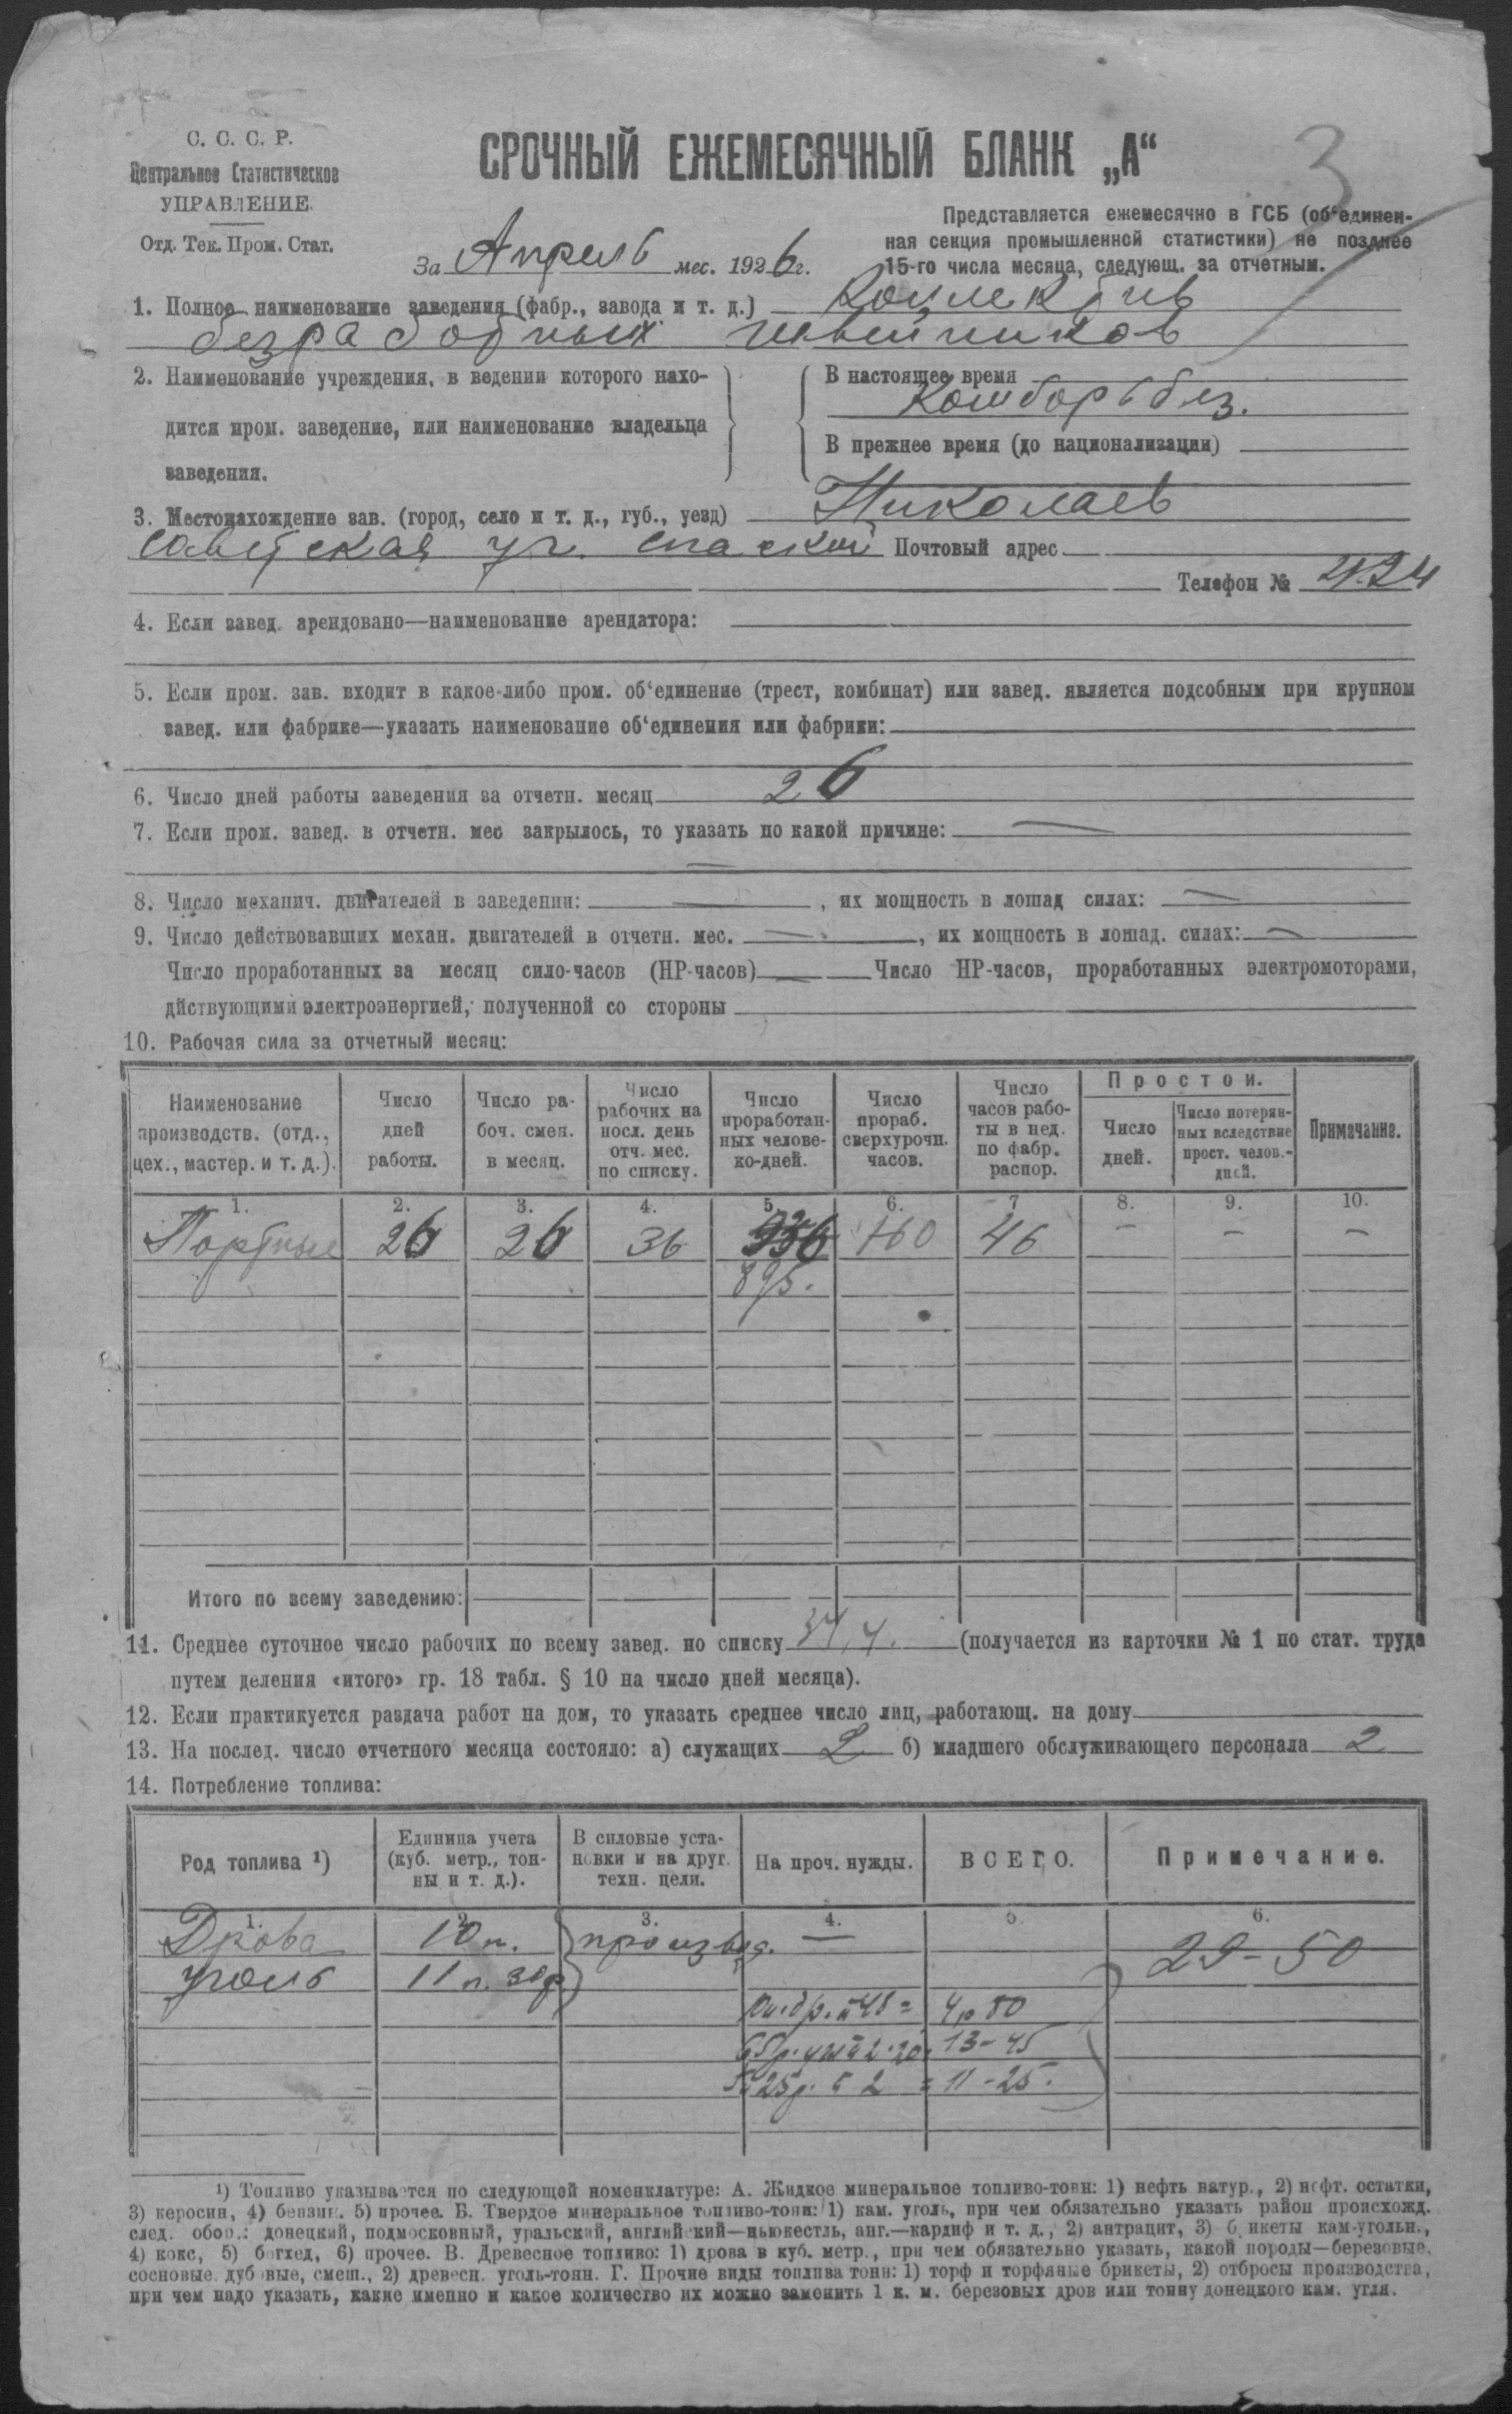 С. С. С. Р.
Центральное Статистическое
УПРАВЛЕНИЕ.
Отд. Тек. Пром. Стат.
СРОЧНЫЙ ЕЖЕМЕСЯЧНЫЙ БЛАНК „А“
3
Представляется ежемесячно в ГСБ (об‘единен-
ная секция промышленной статистики) не позднее
15-го числа месяца, следующ. за отчетным.
За Апрель мес. 1926 г.
1. Полное наименование заведения (фабр., завода и т. д.) Коллектив
безработных швейников
2. Наименование учреждения, в ведении которого нахо-
дится пром. заведение, или наименование владельца
заведения.
В настоящее время
Комборьбез.
В прежнее время (до национализации)
3. Местонахождение зав. (город, село и т. д., губ., уезд) Николаев
Советская уг. Спаской Почтовый адрес
Телефон № 4-24
4. Если завед. арендовано—наименование арендатора:
5. Если пром. зав. входит в какое-либо пром. об‘единение (трест, комбинат) или завед. является подсобным при крупном
завед. или фабрике—указать наименование об‘единения или фабрики:
6. Число дней работы заведения за отчетн. месяц 26
7. Если пром. завед. в отчетн. мес закрылось, то указать по какой причине: —
—
8. Число механич. двигателей в заведении: — , их мощность в лошад силах: —
9. Число действовавших механ. двигателей в отчетн. мес. — , их мощность в лошад. силах: —
Число проработанных за месяц сило-часов (НР-часов) — Число НР-часов, проработанных электромоторами,
дйствующими электроэнергией, полученной со стороны
10. Рабочая сила за отчетный месяц:
Наименование производств. (отд., цех., мастер. и т. д.).
Число дней работы.
Число ра-боч. смен. в месяц.
Число рабочих на посл. день отч. мес. по списку.
Число проработан-ных челове-ко-дней.
Число прораб. сверхурочн. часов.
Число часов рабо-ты в нед. по фабр. распор.
Простои.
Число дней.
Число потерян-ных вследствие прост. челов.-дней.
Примечание.
1. 2. 3. 4. 5. 6. 7 8. 9. 10.
Портные 26 26 36 936 160 46 — — —
895.
Итого по всему заведению:
11. Среднее суточное число рабочих по всему завед. по списку 34,4. (получается из карточки № 1 по стат. труда
путем деления «итого» гр. 18 табл. § 10 на число дней месяца).
12. Если практикуется раздача работ на дом, то указать среднее число лиц, работающ. на дому
13. На послед. число отчетного месяца состояло: а) служащих 2 б) младшего обслуживающего персонала 2
14. Потребление топлива:
Род топлива ¹)
Единица учета (куб. метр., тон-ны и т. д.).
В силовые уста-новки и на друг. техн. цели.
На проч. нужды.
ВСЕГО.
Примечание.
1. 2. 3. 4. 5. 6.
Дрова 10 п. произвд. — 29-50
Уголь 11 п. 30ф
48 = 4р 80
2.20 = 13-45
25 2 = 11-25.
¹) Топливо указывается по следующей номенклатуре: А. Жидкое минеральное топливо-тонн: 1) нефть натур., 2) нефт. остатки,
3) керосин, 4) бензин. 5) прочее. Б. Твердое минеральное топливо-тонн: 1) кам. уголь, при чем обязательно указать район происхожд.
след. обоп.: донецкий, подмосковный, уральский, английский—ньюкестль, анг.—кардиф и т. д., 2) антрацит, 3) б икеты кам-угольн.,
4) кокс, 5) богхед, 6) прочее. В. Древесное топливо: 1) дрова в куб. метр., при чем обязательно указать, какой породы—березовые,
сосновые дуб вые, смеш., 2) древесн. уголь-тонн. Г. Прочие виды топлива тонн: 1) торф и торфяные брикеты, 2) отбросы производства,
при чем надо указать, какие именно и какое количество их можно заменить 1 к. м. березовых дров или тонну донецкого кам. угля.